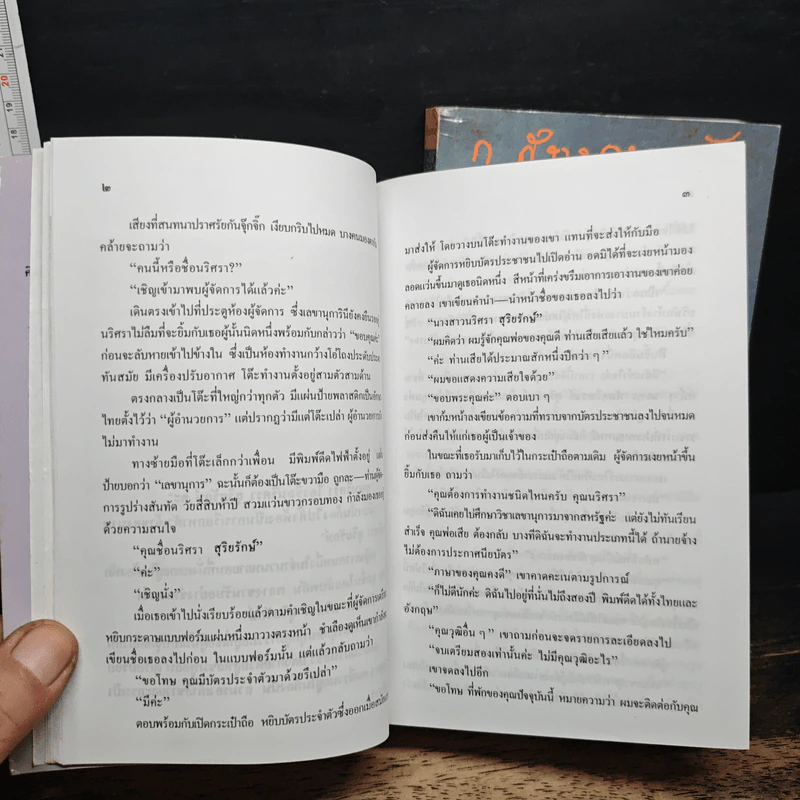 ๒
เสียงที่สนทนาปราศรัยกันจุ๊กจิ๊ก เงียบกริบไปหมด บางคนมอง
คล้ายจะถามว่า
“คนนี้หรือชื่อนริศรา?”
“เชิญเข้ามาพบผู้จัดการได้แล้วค่ะ”
เดินตรงเข้าไปที่ประตูห้องผู้จัดการ ซึ่งเลขานุการินียังคงยืน
นริศราไม่ลืมที่จะยิ้มกับเธอผู้นั้นนิดหนึ่งพร้อมกับกล่าวว่า “ขอบคุณค่ะ”
ก่อนจะลับหายเข้าไปข้างใน ซึ่งเป็นห้องทำงานกว้างโอ่โถงประดับประดา
ทันสมัย มีเครื่องปรับอากาศ โต๊ะทำงานตั้งอยู่สามตัวสามด้าน
ตรงกลางเป็นโต๊ะที่ใหญ่กว่าทุกตัว มีแผ่นป้ายพลาสติกเป็น
ไทยตั้งไว้ว่า “ผู้อำนวยการ” แต่ปรากฏว่ามีแต่โต๊ะเปล่า ผู้อำนวยการยัง
ไม่มาทำงาน
ทางซ้ายมือที่โต๊ะเล็กกว่าเพื่อน มีพิมพ์ดีดไฟฟ้าตั้งอยู่
ป้ายบอกว่า “เลขานุการ” ฉะนั้นก็ต้องเป็นโต๊ะขวามือ ถูกละ—ท่านผู้จัด
การรูปร่างสันทัด วัยสี่สิบห้าปี สวมแว่นขาวกรอบทอง กำลังมอง
ด้วยความสนใจ
“คุณชื่อนริศรา สุริยรักษ์”
“ค่ะ”
“เชิญนั่ง”
เมื่อเธอเข้าไปนั่งเรียบร้อยแล้วตามคำเชิญในขณะที่ผู้จัดการ
หยิบกระดาษแบบฟอร์มแผ่นหนึ่งมาวางตรงหน้า ชำเลืองดูเห็นเขากำลัง
เขียนชื่อเธอลงไปก่อน ในแบบฟอร์มนั้น แต่แล้วกลับถามว่า
“ขอโทษ คุณมีบัตรประจำตัวมาด้วยรึเปล่า”
“มีค่ะ”
ตอบพร้อมกับเปิดกระเป๋าถือ หยิบบัตรประจำตัวซึ่งออกเมื่อ
๓
มาส่งให้ โดยวางบนโต๊ะทำงานของเขา แทนที่จะส่งให้กับมือ
ผู้จัดการหยิบบัตรประชาชนไปเปิดอ่าน อดมิได้ที่จะเงยหน้ามอง
ลอดแว่นขึ้นมาดูเธอนิดหนึ่ง สีหน้าที่เคร่งขรึมเอาการเอางานของเขาค่อย
คลายลง เขาเขียนคำนำ—นำหน้าชื่อของเธอลงไปว่า
“นางสาวนริศรา สุริยรักษ์”
“ผมคิดว่า ผมรู้จักคุณพ่อของคุณดี ท่านเสียเสียแล้ว ใช่ไหมครับ”
“ค่ะ ท่านเสียได้ประมาณสักหนึ่งปีกว่า ๆ”
“ผมขอแสดงความเสียใจด้วย”
“ขอบพระคุณค่ะ” ตอบเบา ๆ
เขาก้มหน้าลงเขียนข้อความที่ทราบจากบัตรประชาชนลงไปจนหมด
ก่อนส่งคืนให้แก่เธอผู้เป็นเจ้าของ
ในขณะที่เธอรับมาเก็บไว้ในกระเป๋าถือตามเดิม ผู้จัดการเงยหน้าขึ้น
ยิ้มกับเธอ ถามว่า
“คุณต้องการทำงานชนิดไหนครับ คุณนริศรา”
“ดิฉันเคยไปศึกษาวิชาเลขานุการมาจากสหรัฐค่ะ แต่ยังไม่ทันเรียน
สำเร็จ คุณพ่อเสีย ต้องกลับ บางทีดิฉันจะทำงานประเภทนี้ได้ ถ้านายจ้าง
ไม่ต้องการประกาศนียบัตร”
“ภาษาของคุณคงดี” เขาคาดคะเนตามรูปการณ์
“ก็ไม่ดีนักค่ะ ดิฉันไปอยู่ที่นั่นไม่ถึงสองปี พิมพ์ดีดได้ทั้งไทยและ
อังกฤษ”
“คุณวุฒิอื่น ๆ” เขาถามก่อนจะจดรายการละเอียดลงไป
“จบเตรียมสองเท่านั้นค่ะ ไม่มีคุณวุฒิอะไร”
เขาจดลงไปอีก
“ขอโทษ ที่พักของคุณปัจจุบันนี้ หมายความว่า ผมจะติดต่อกับคุณ
19
20
18